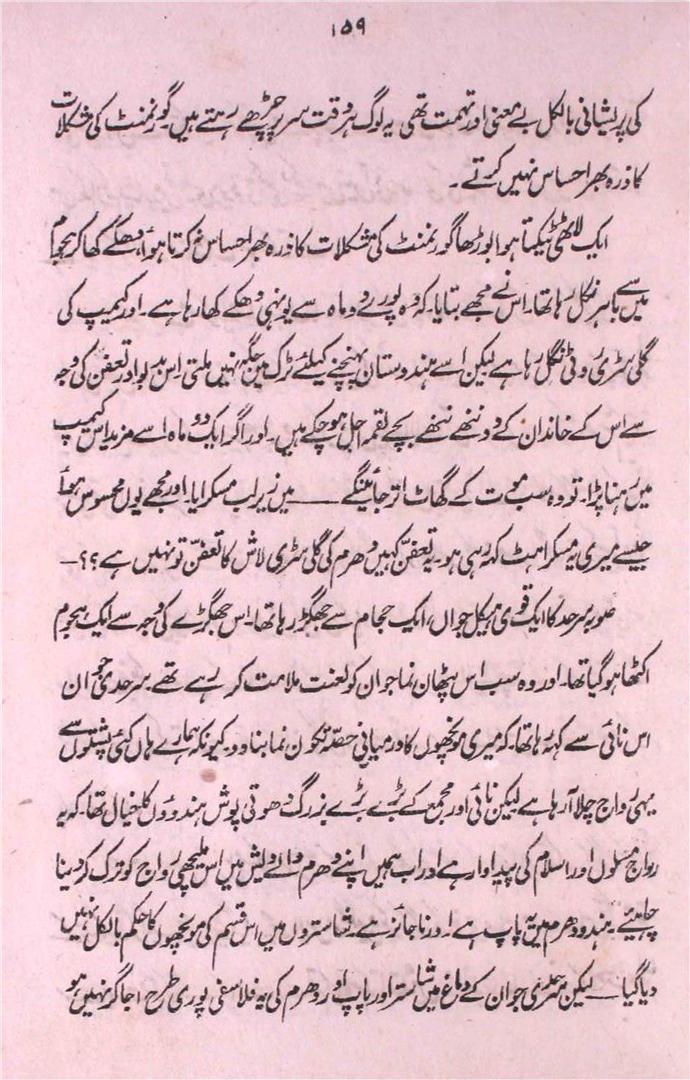 ۱۵۹
کی پریشانی بالکل بے معنی اور تہمت تھی یہ لوگ ہر وقت سر پر چڑھے رہتے ہیں۔ گورنمنٹ کی مشکلات
کا ذرہ بھر احساس نہیں کرتے ۔
ایک لاٹھی ٹیکتا ہوا بوڑھا گورنمنٹ کی مشکلات کا ذرہ بھر احساس نہ کرتا ہوا، دھکے کھا کر ہجوم
میں سے باہر نکل رہا تھا۔ اس نے مجھے بتایا۔ کہ وہ پورے دو ماہ سے یونہی دھکے کھا رہا ہے۔ اور کیمپ کی
گلی سڑی روٹی نگل رہا ہے لیکن اسے ہندوستان پہنچنے کیلئے ٹرک میں جگہ نہیں ملتی۔ اس بدبو اور تعفن کی وجہ
سے اس کے خاندان کے دو ننھے ننھے بچے لقمہ اجل ہو چکے ہیں۔ اور اگر ایک دو ماہ اسے مزید اس کیمپ
میں رہنا پڑا۔ تو وہ سب موت کے گھاٹ اتر جائینگے ــــــ میں زیر لب مسکرایا۔ اور مجھے یوں محسوس ہوا
جیسے میری یہ مسکراہٹ کہہ رہی ہو۔ یہ تعفن کہیں دھرم کی گلی سڑی لاش کا تعفن تو نہیں ہے؟؟ —
صوبہ سرحد کا ایک قوی ہیکل جواں، ایک حجام سے جھگڑ رہا تھا۔ اس جھگڑے کی وجہ سے ایک ہجوم
اکٹھا ہو گیا تھا۔ اور وہ سب اس پٹھان نما جوان کو لعنت ملامت کر رہے تھے۔ سرحدی جوان
اس نائی سے کہہ رہا تھا۔ کہ میری مونچھوں کا درمیانی حصّہ تکون نما بنا دو۔ کیونکہ ہمارے ہاں کئی پشتوں سے
یہی رواج چلا آ رہا ہے لیکن نائی اور مجمع کے بڑے بڑے بزرگ دھوتی پوش ہندوؤں کا خیال تھا۔ کہ یہ
رواج مسلوں اور اسلام کی پیداوار ہے اور اب ہمیں اپنے دھرم والے دیش میں اس ملیچھی رواج کو ترک کر دینا
چاہیئے۔ ہندو دھرم میں یہ پاپ ہے اور ناجائز ہے۔ شاستروں میں اس قسم کی مونچھوں کا حکم بالکل نہیں
دیا گیا ــــ لیکن سرحدی جوان کے دماغ میں شاستر اور پاپ اور دھرم کی یہ فلاسفی پوری طرح اجاگر نہیں ہو